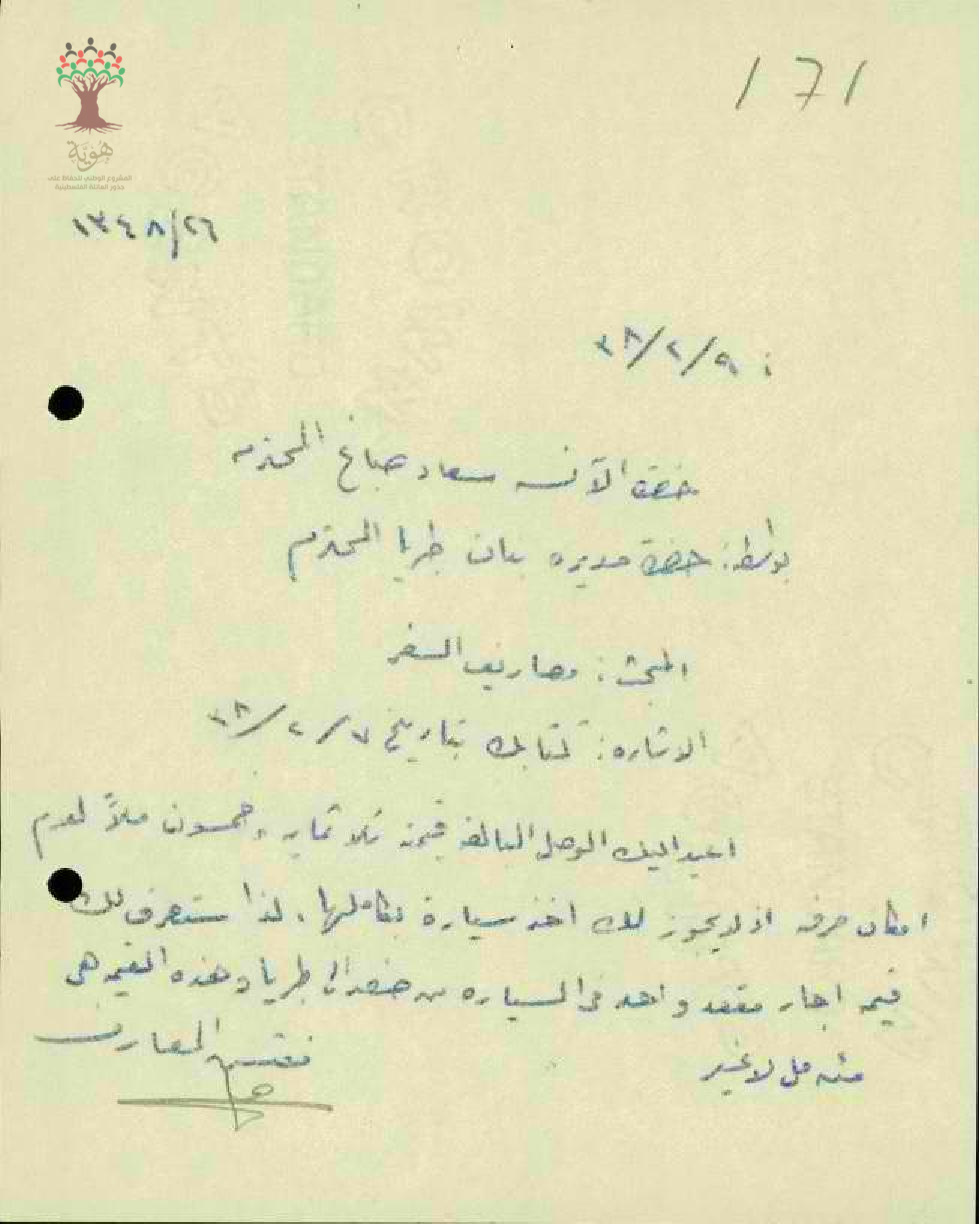 171
هُوِيَّة
المشروع الوطني للحفاظ على
جذور العائلة الفلسطينية
١٣٤٨/٢٦
٣٨/٢/٩ :
حضرة الآنسه سعاد صباغ المحترمه
بواسطة: حضرة مديره بنات طبريا المحترم
المبحث: مصاريف السفر
الاشاره: كتابك بتاريخ ٧/٢/٣٨
اعيد اليك الوصل البالغه قيمته ثلاثمايه وخمسون ملاً لعدم
امكان صرفه اذ لا يجوز لك اخذ سيارة بكاملها، لذا ستصرف لك
قيمه اجار مقعد واحد في السياره من صفد الى طبريا وهذه القيمه هي
مئه مل لا غير
مفتش المعارف